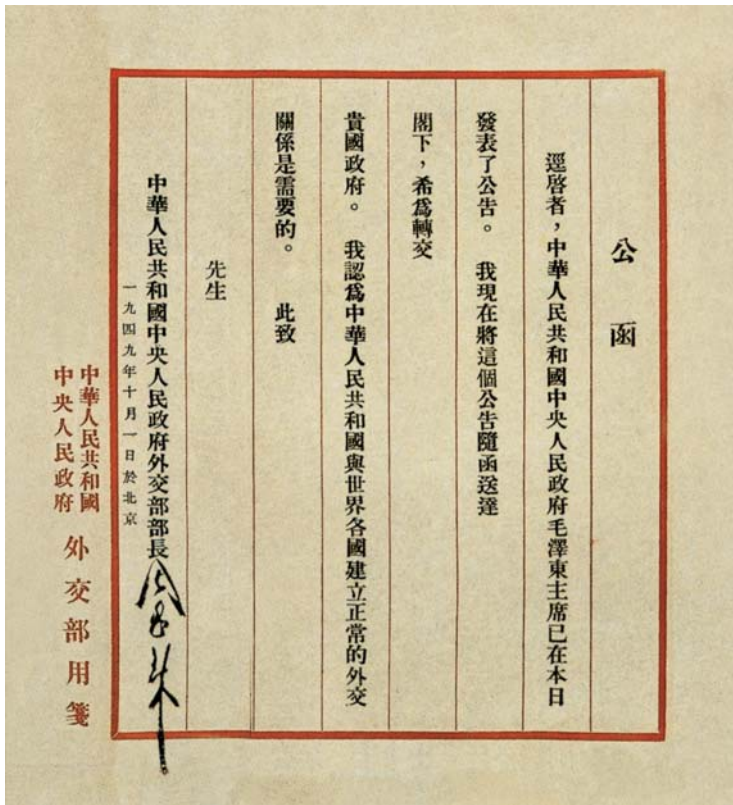 公函
逕啓者，中華人民共和國中央人民政府毛澤東主席已在本日
發表了公告。　我現在將這個公告隨函送達
閣下，希爲轉交
貴國政府。　我認爲中華人民共和國與世界各國建立正常的外交
關係是需要的。　此致
先生
中華人民共和國中央人民政府外交部部長周恩來
一九四九年十月一日於北京
中華人民共和國
中央人民政府
外交部用箋